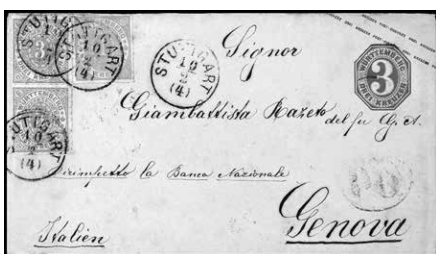 STUTTGART
10
2
(4)
STUTTGART
10
2
(4)
STUTTGART
10
2
(4)
STUTTGART
10
2
(4)
3
3
WÜRTTEMBERG
3
DREI KREUZER
Signor
Giambattista Razeto del fu G. A.
rimpetto la Banca Nazionale
Genova
Italien